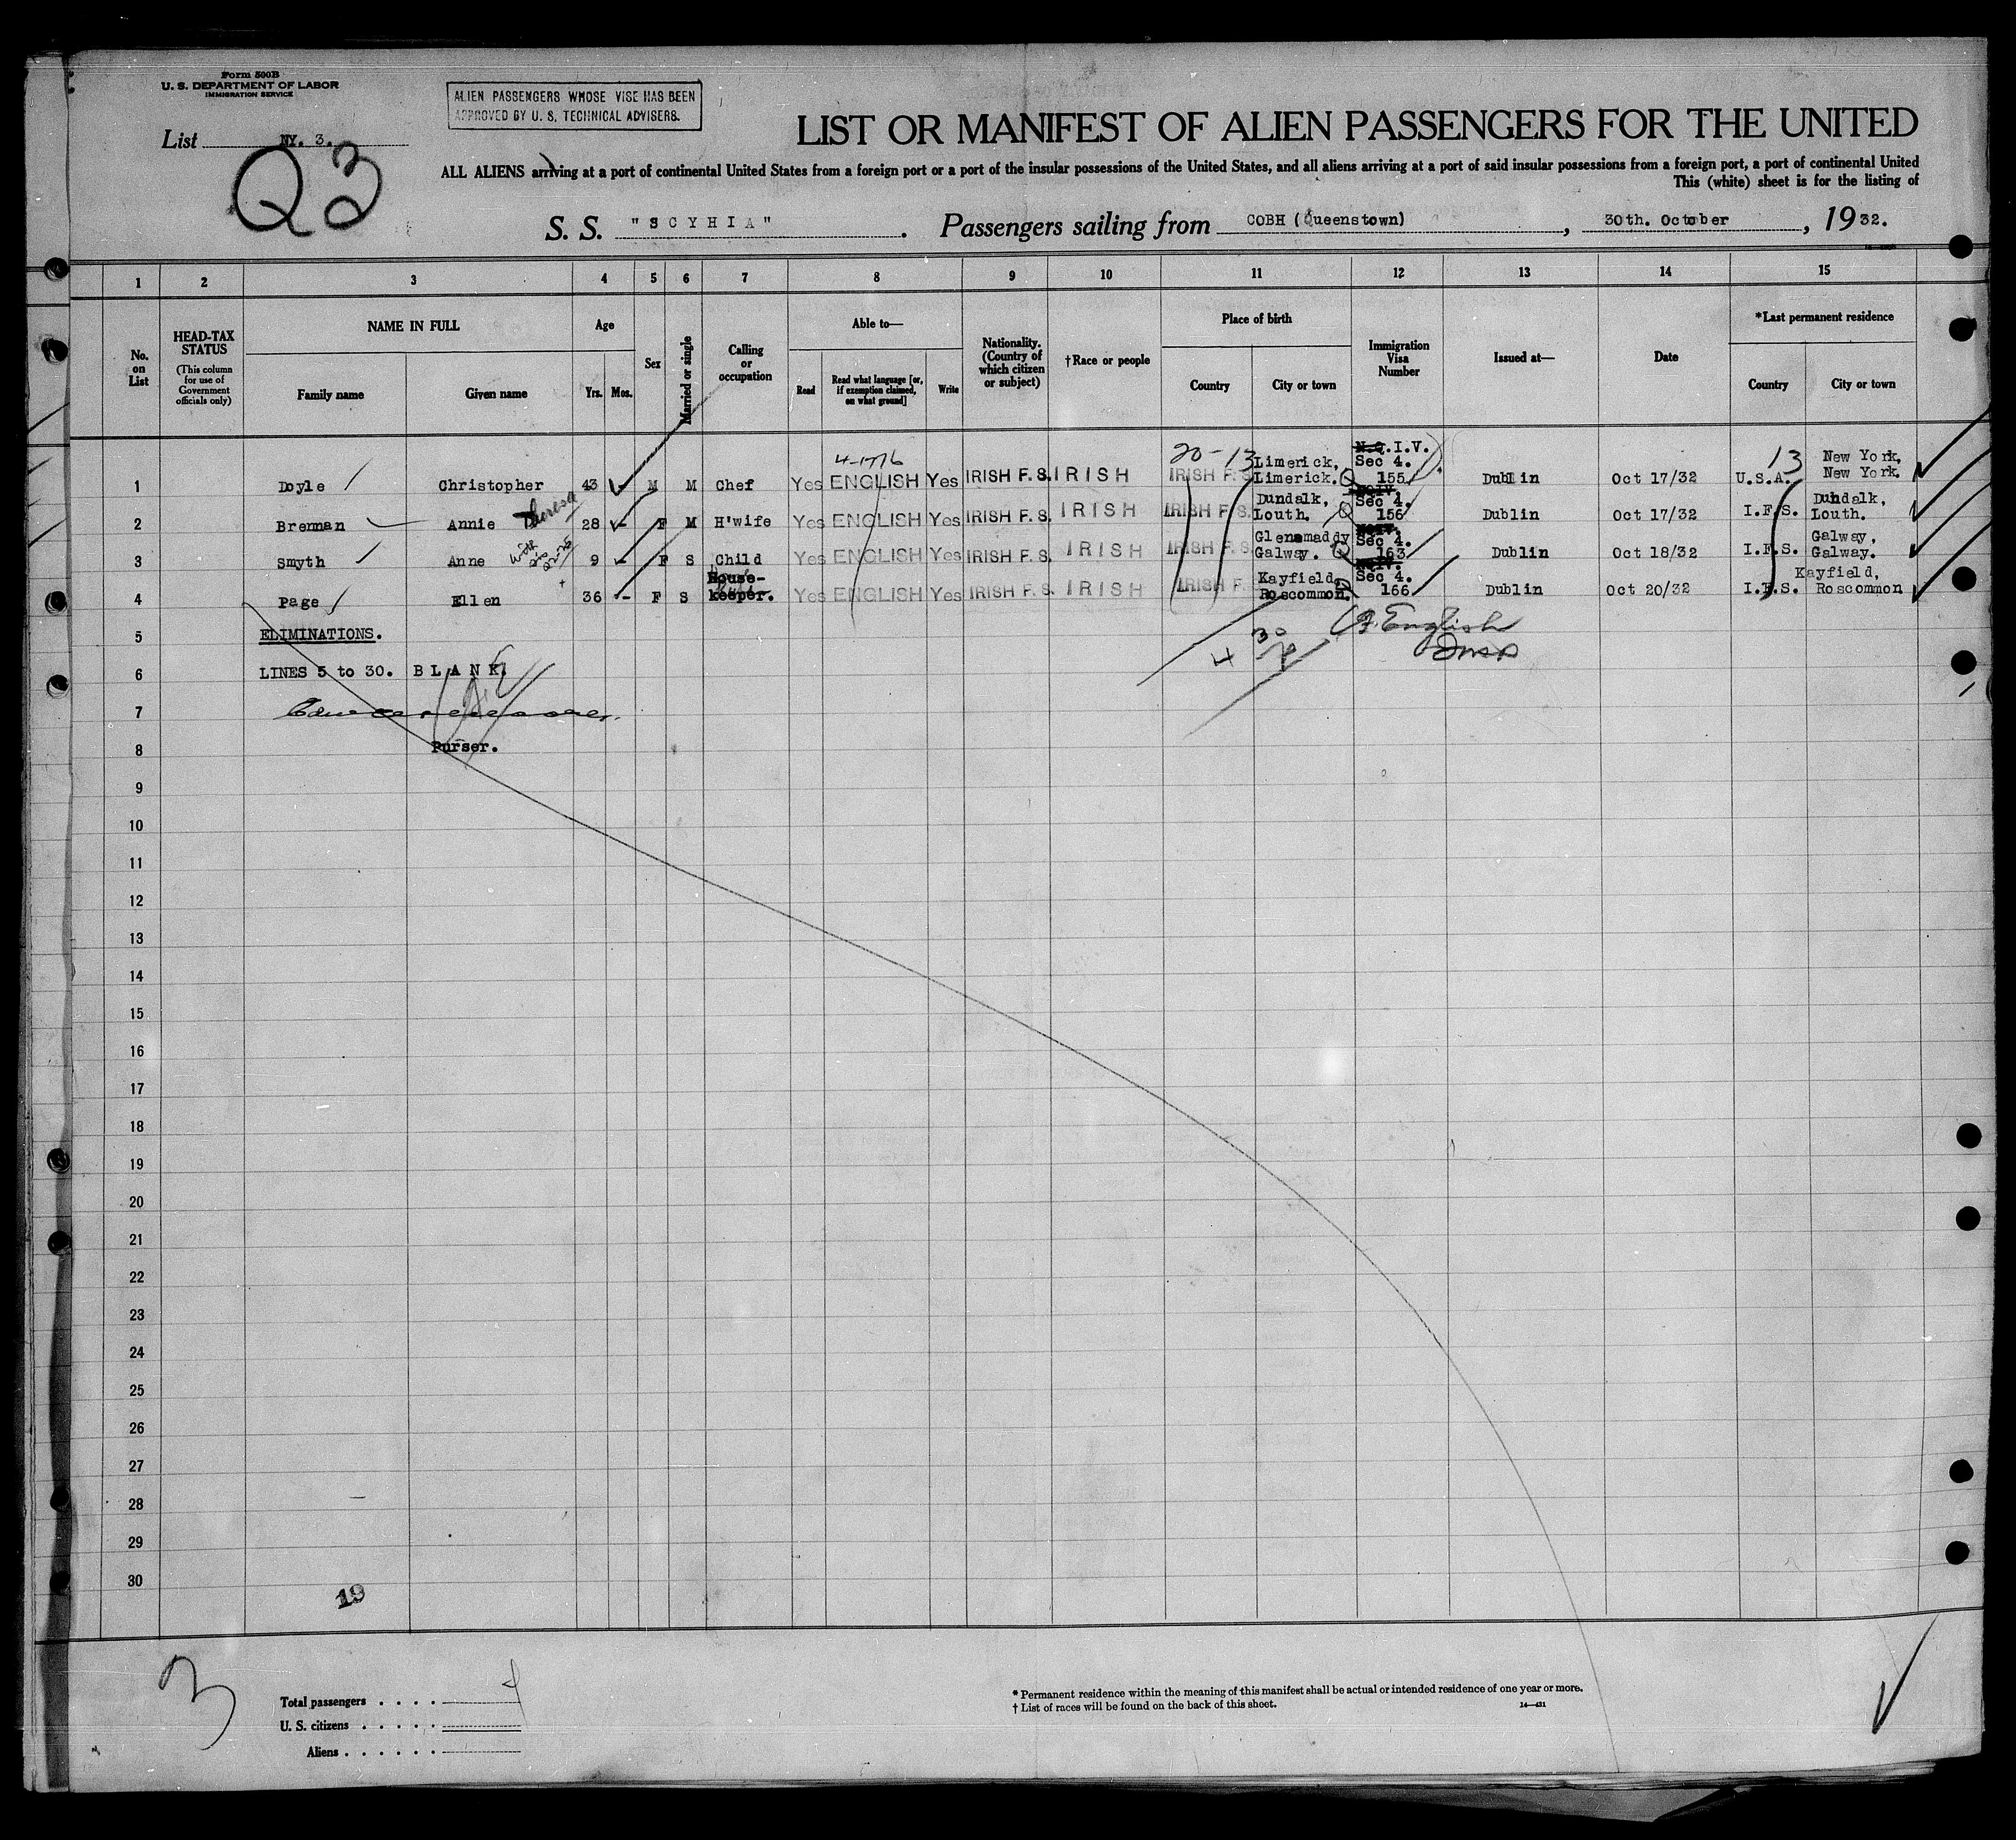 Form 500B
U. S. DEPARTMENT OF LABOR
IMMIGRATION SERVICE
ALIEN PASSENGERS WHOSE VISE HAS BEEN
APPROVED BY U. S. TECHNICAL ADVISERS.
List NY. 3.
Q3
LIST OR MANIFEST OF ALIEN PASSENGERS FOR THE UNITED
ALL ALIENS arriving at a port of continental United States from a foreign port or a port of the insular possessions of the United States, and all aliens arriving at a port of said insular possessions from a foreign port, a port of continental United
This (white) sheet is for the listing of
S. S. "SCYHIA". Passengers sailing from COBH (Queenstown), 30th. October, 1932.
1 2 3 4 5 6 7 8 9 10 11 12 13 14 15
No. on List
HEAD-TAX STATUS
(This column for use of Government officials only)
NAME IN FULL
Family name Given name
Age
Yrs. Mos.
Sex
Married or single
Calling or occupation
Able to—
Read Read what language [or, if exemption claimed, on what ground] Write
Nationality. (Country of which citizen or subject)
†Race or people
Place of birth
Country City or town
Immigration Visa Number
Issued at—
Date
*Last permanent residence
Country City or town
4-1776 20-13 13
1 Doyle Christopher 43 M M Chef Yes ENGLISH Yes IRISH F.S. IRISH IRISH F.S. Limerick, Limerick. N.Q.I.V. Sec 4. 155 Dublin Oct 17/32 U.S.A. New York, New York.
2 Brennan Annie Theresa 28 F M H'wife Yes ENGLISH Yes IRISH F.S. IRISH IRISH F.S. Dundalk, Louth. NQIV. Sec 4. 156 Dublin Oct 17/32 I.F.S. Dundalk, Louth.
3 Smyth Anne 9 F S Child Yes ENGLISH Yes IRISH F.S. IRISH IRISH F.S. Glenamaddy Galway. NQIV. Sec 4. 163 Dublin Oct 18/32 I.F.S. Galway, Galway.
4 Page Ellen 36 F S House-keeper. Yes ENGLISH Yes IRISH F.S. IRISH IRISH F. Kayfield, Roscommon. NQIV. Sec 4. 166 Dublin Oct 20/32 I.F.S. Kayfield, Roscommon
5 ELIMINATIONS.
English
6 LINES 5 to 30. BLANK.
7
8 Purser.
9
10
11
12
13
14
15
16
17
18
19
20
21
22
23
24
25
26
27
28
29
30
19
3
Total passengers . . . . 4
U. S. citizens . . . . .
Aliens . . . . . .
* Permanent residence within the meaning of this manifest shall be actual or intended residence of one year or more.
† List of races will be found on the back of this sheet.
14—431